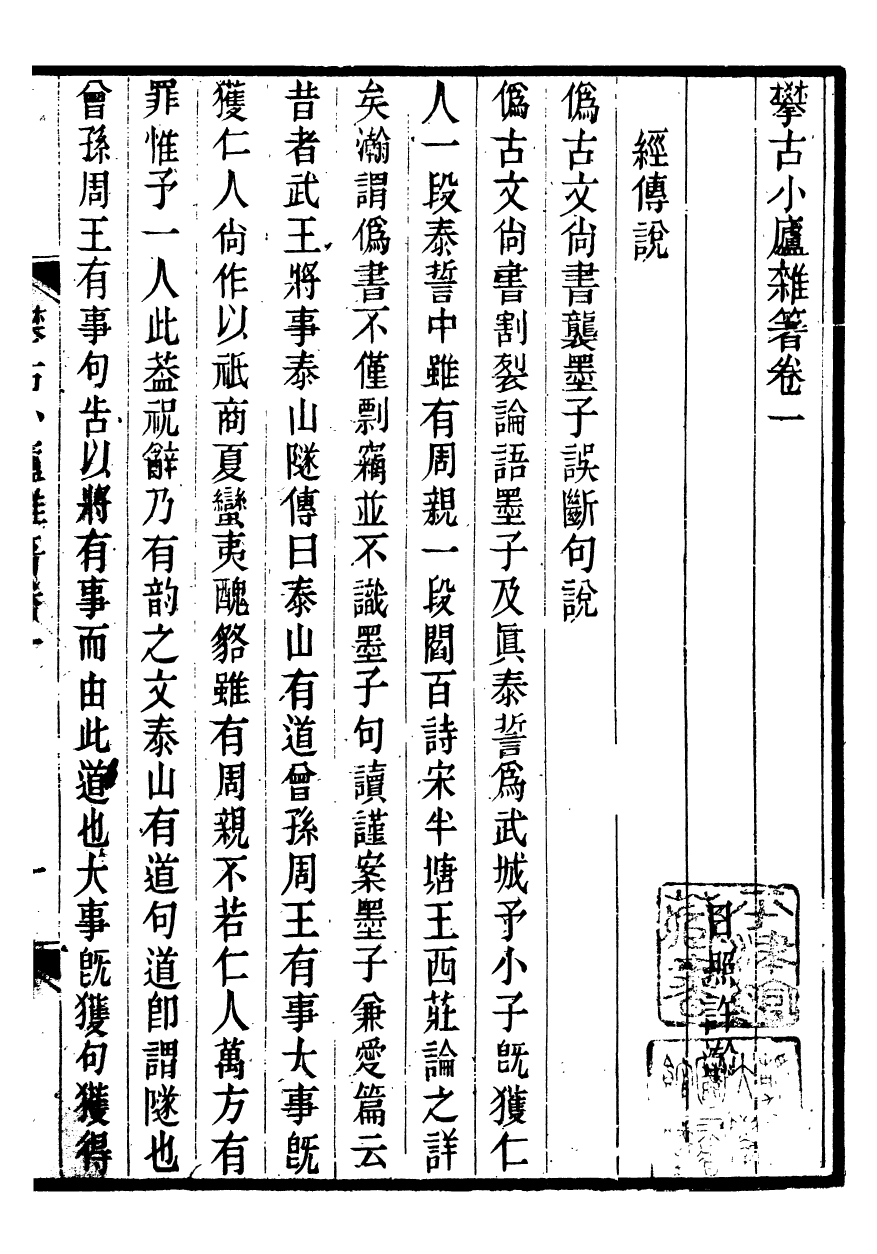 攀古小廬雜箸卷一
日照許瀚
經傳說
僞古文尙書襲墨子誤斷句說
僞古文尙書割裂論語墨子及眞泰誓爲武城予小子旣獲仁
人一段泰誓中雖有周親一段閻百詩宋半塘王西莊論之詳
矣瀚謂僞書不僅剽竊並不識墨子句讀謹案墨子兼愛篇云
昔者武王將事泰山隧傳曰泰山有道曾孫周王有事大事旣
獲仁人尙作以祗商夏蠻夷醜貉雖有周親不若仁人萬方有
罪惟予一人此葢祝辭乃有韵之文泰山有道句道卽謂隧也
曾孫周王有事句告以將有事而由此道也大事旣獲句獲得